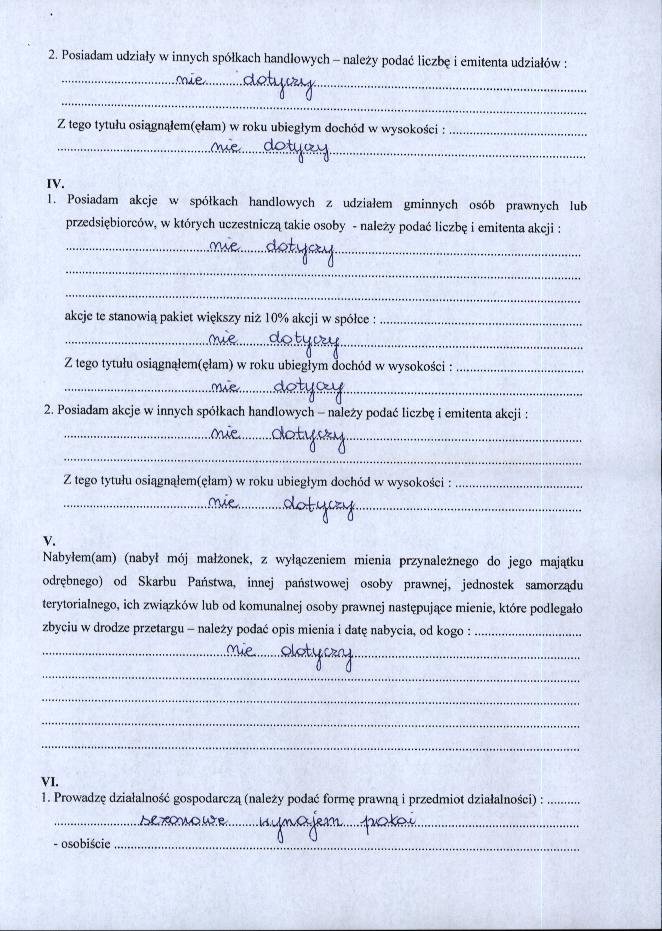 2. Posiadam udziały w innych spółkach handlowych – należy podać liczbę i emitenta udziałów :
nie dotyczy
Z tego tytułu osiągnąłem(ęłam) w roku ubiegłym dochód w wysokości :
nie dotyczy
IV.
1. Posiadam akcje w spółkach handlowych z udziałem gminnych osób prawnych lub
przedsiębiorców, w których uczestniczą takie osoby - należy podać liczbę i emitenta akcji :
nie dotyczy
akcje te stanowią pakiet większy niż 10% akcji w spółce :
nie dotyczy
Z tego tytułu osiągnąłem(ęłam) w roku ubiegłym dochód w wysokości :
nie dotyczy
2. Posiadam akcje w innych spółkach handlowych – należy podać liczbę i emitenta akcji :
nie dotyczy
Z tego tytułu osiągnąłem(ęłam) w roku ubiegłym dochód w wysokości :
nie dotyczy
V.
Nabyłem(am) (nabył mój małżonek, z wyłączeniem mienia przynależnego do jego majątku
odrębnego) od Skarbu Państwa, innej państwowej osoby prawnej, jednostek samorządu
terytorialnego, ich związków lub od komunalnej osoby prawnej następujące mienie, które podlegało
zbyciu w drodze przetargu – należy podać opis mienia i datę nabycia, od kogo :
nie dotyczy
VI.
1. Prowadzę działalność gospodarczą (należy podać formę prawną i przedmiot działalności) :
sezonowe wynajem pokoi
- osobiście